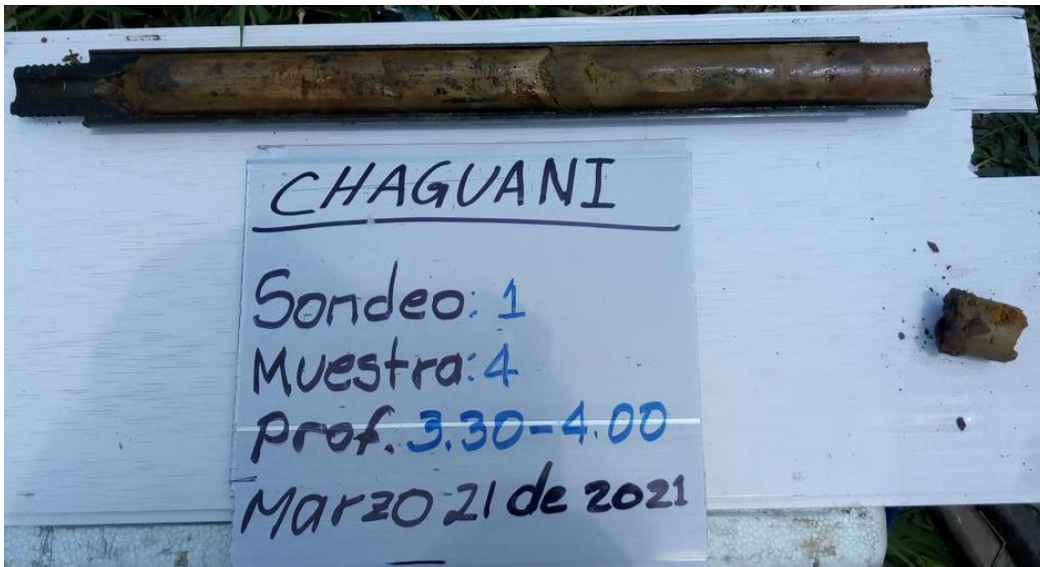 CHAGUANI
Sondeo: 1
Muestra: 4
Prof. 3.30-4.00
Marzo 21 de 2021